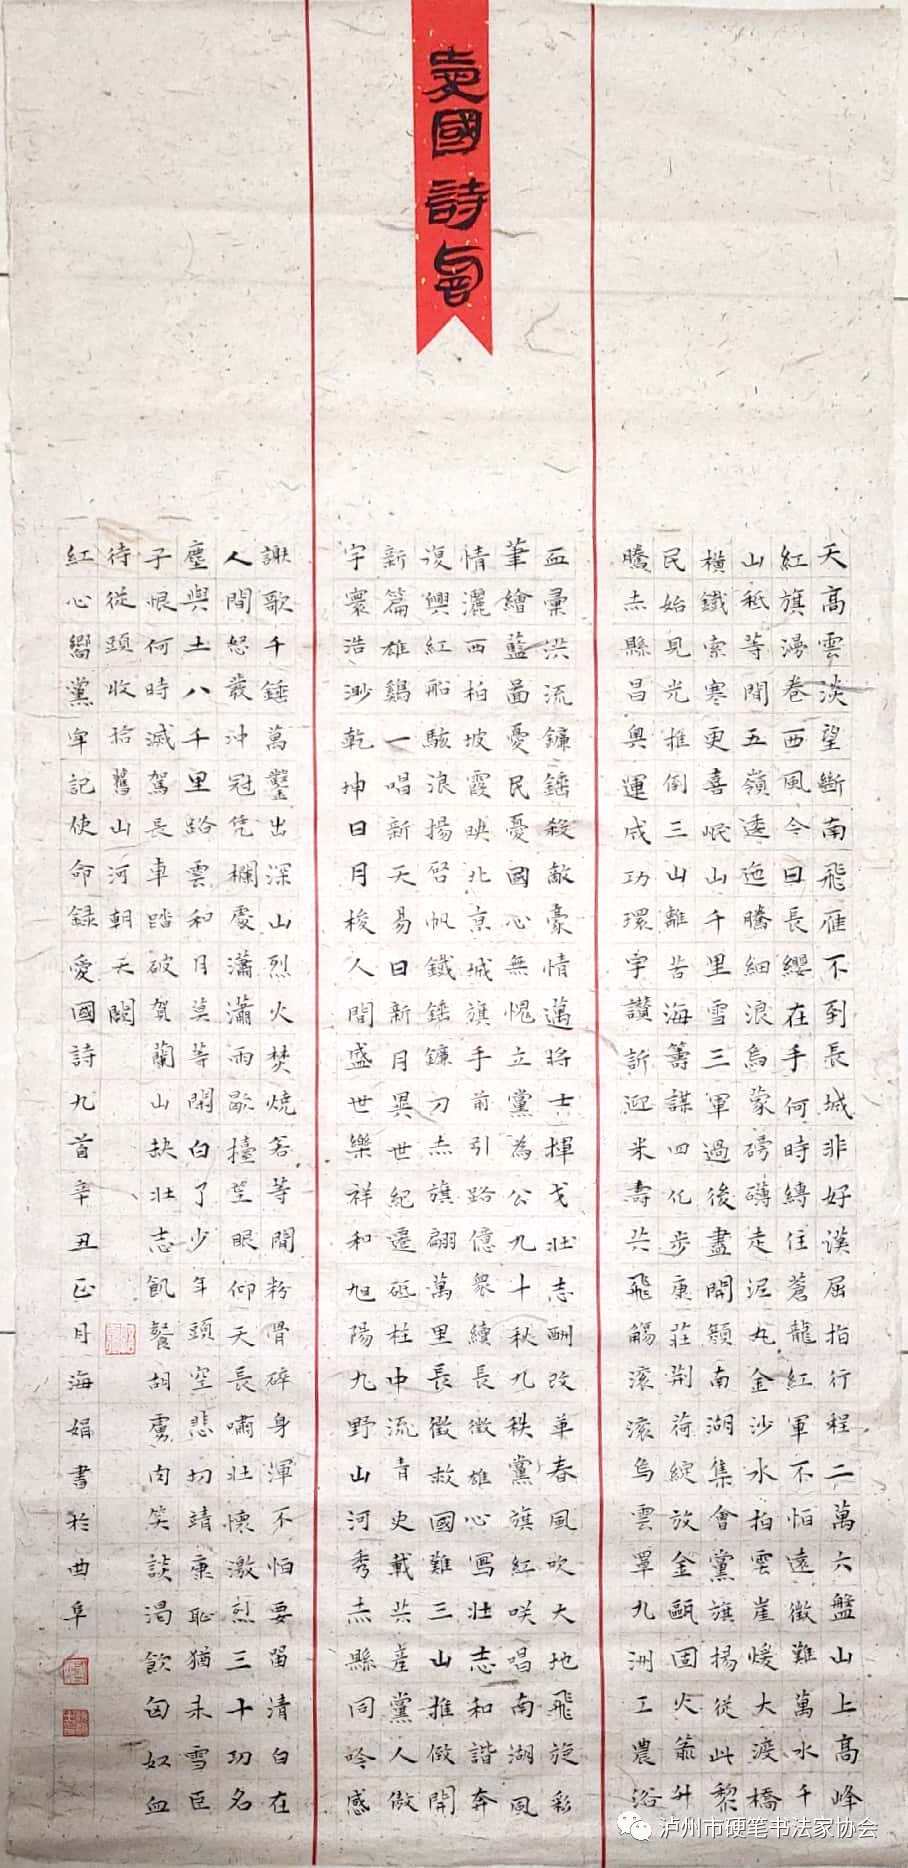 愛國詩會
天高雲淡望斷南飛雁不到長城非好漢屈指行程二萬六盤山上高峰
紅旗漫卷西風今日長纓在手何時縛住蒼龍紅軍不怕遠徵難萬水千
山衹等閒五嶺逶迤騰細浪烏蒙磅礴走泥丸金沙水拍雲崖煖大渡橋
橫鐵索寒更喜岷山千里雪三軍過後盡開顏南湖集會黨旗揚從此黎
民始見光推倒三山離苦海籌謀四化步康莊荊荷綻放金甌固火箭升
騰赤縣昌奧運成功環宇讚訢迎米壽共飛觴滾滾烏雲罩九洲工農浴
血彙洪流鐮錘殺敵豪情邁將士揮戈壯志酬改革春風吹大地飛旋彩
筆繪藍圖憂民憂國心無愧立黨為公九十秋九秩黨旗紅咲唱南湖風
情灑西柏坡霞映北京城旗手前引路億衆續長徵雄心寫壯志和諧奔
復興紅船駭浪揚啓帆鐵錘鐮刀赤旗翩萬里長徵救國難三山推倣開
新篇雄鷄一唱新天易日新月異世紀遷砥柱中流青史載共産黨人傲
宇寰浩渺乾坤日月梭人間盛世樂祥和旭陽九野山河秀赤縣同吟感
謝歌千錘萬鑿出深山烈火焚燒若等閒粉骨碎身渾不怕要留清白在
人間怒髮沖冠凭欄處瀟瀟雨歇擡望眼仰天長嘯壯懷激烈三十功名
塵與土八千里路雲和月莫等閑白了少年頭空悲切靖康恥猶未雪臣
子恨何時滅駕長車踏破賀蘭山缺壯志飢餐胡虜肉笑談渴飲匈奴血
待從頭收拾舊山河朝天闕
紅心嚮黨牢記使命錄愛國詩九首辛丑正月海娟書於曲阜
泸州市硬笔书法家协会